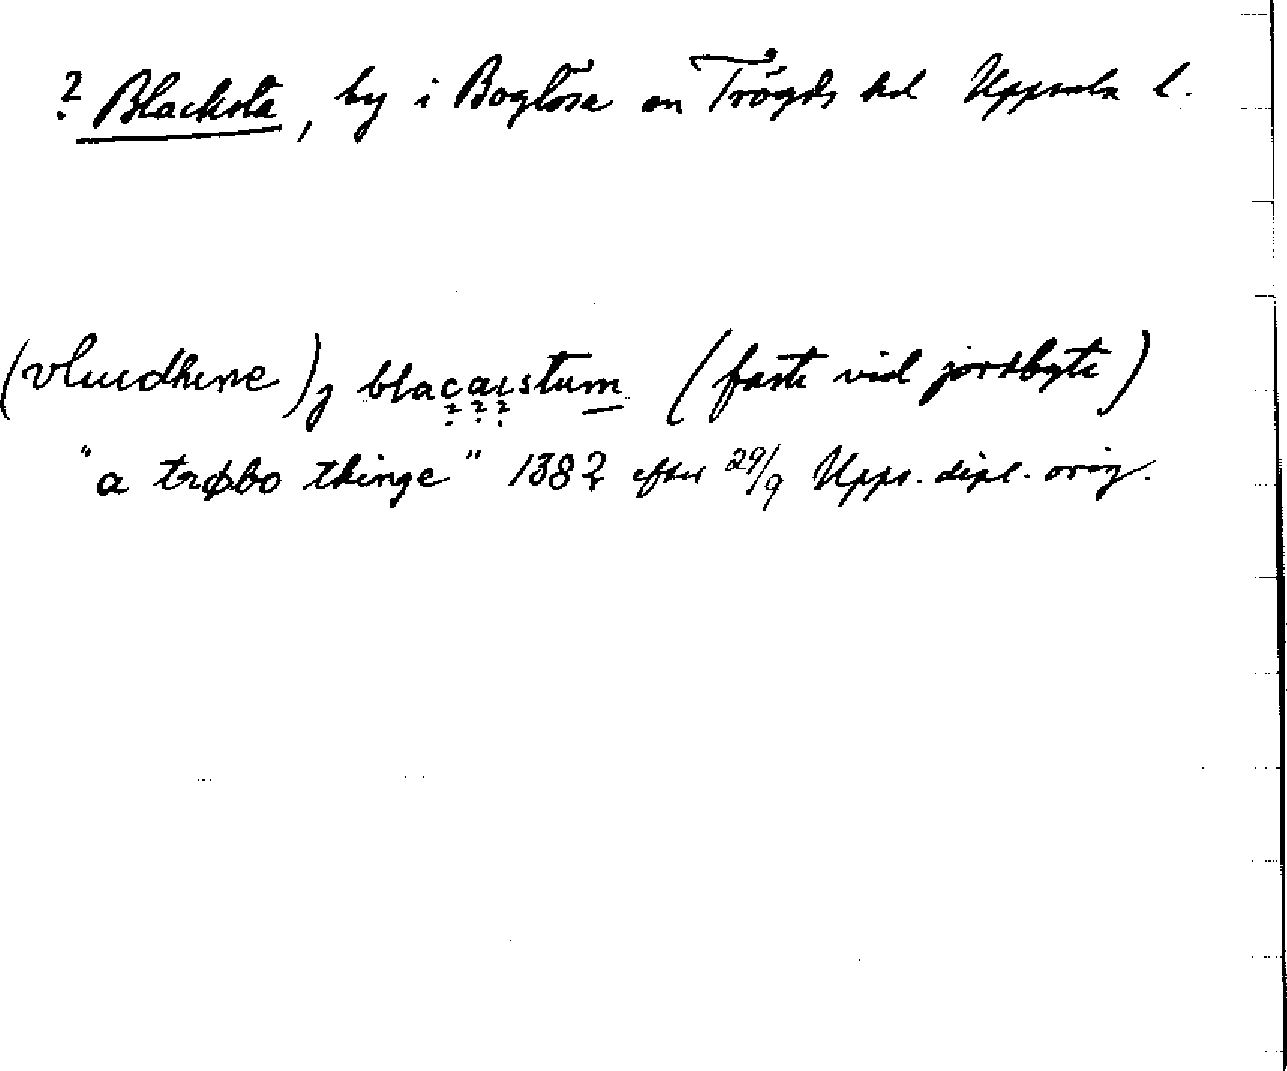 ? Blacksta, by i Boglösa sn Trögds hd Uppsala l.
( ) j blacaistum (faste vid jordbyte)
"a trøbo thinge" 1382 efter 29/9 Upps. dipl. orig.